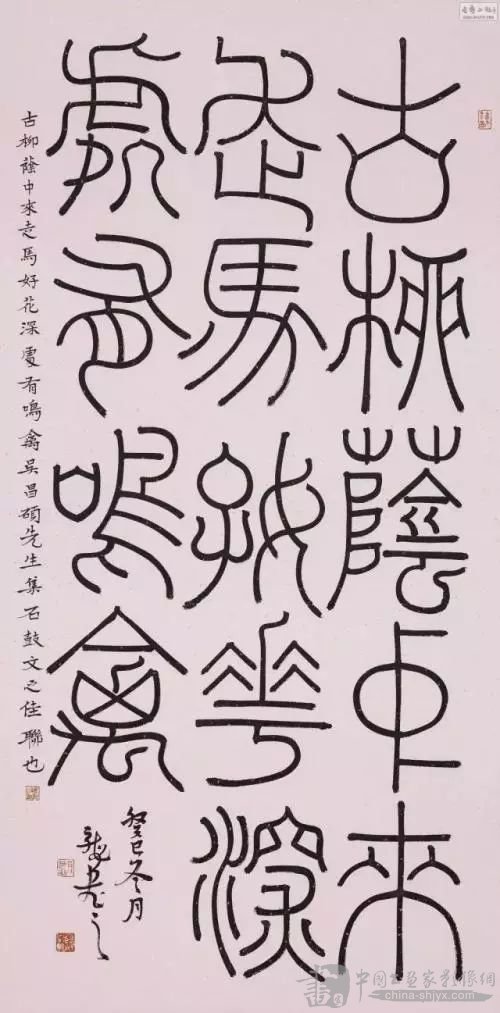 古柳蔭中來
走馬好花深
處有鳴禽
癸巳冬月
古柳蔭中來走馬好花深處有鳴禽吳昌碩先生集石鼓文之佳聯也
中国书画家影像網
china-shjyx.com